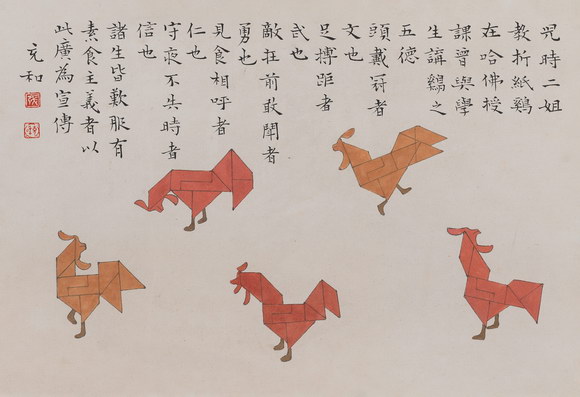 兒時二姐
教折紙鷄
在哈佛授
課曾與學
生講鷄之
五德
頭戴冠者
文也
足搏距者
武也
敵在前敢鬪者
勇也
見食相呼者
仁也
守夜不失時者
信也
諸生皆歎服有
素食主義者以
此廣為宣傳
充和